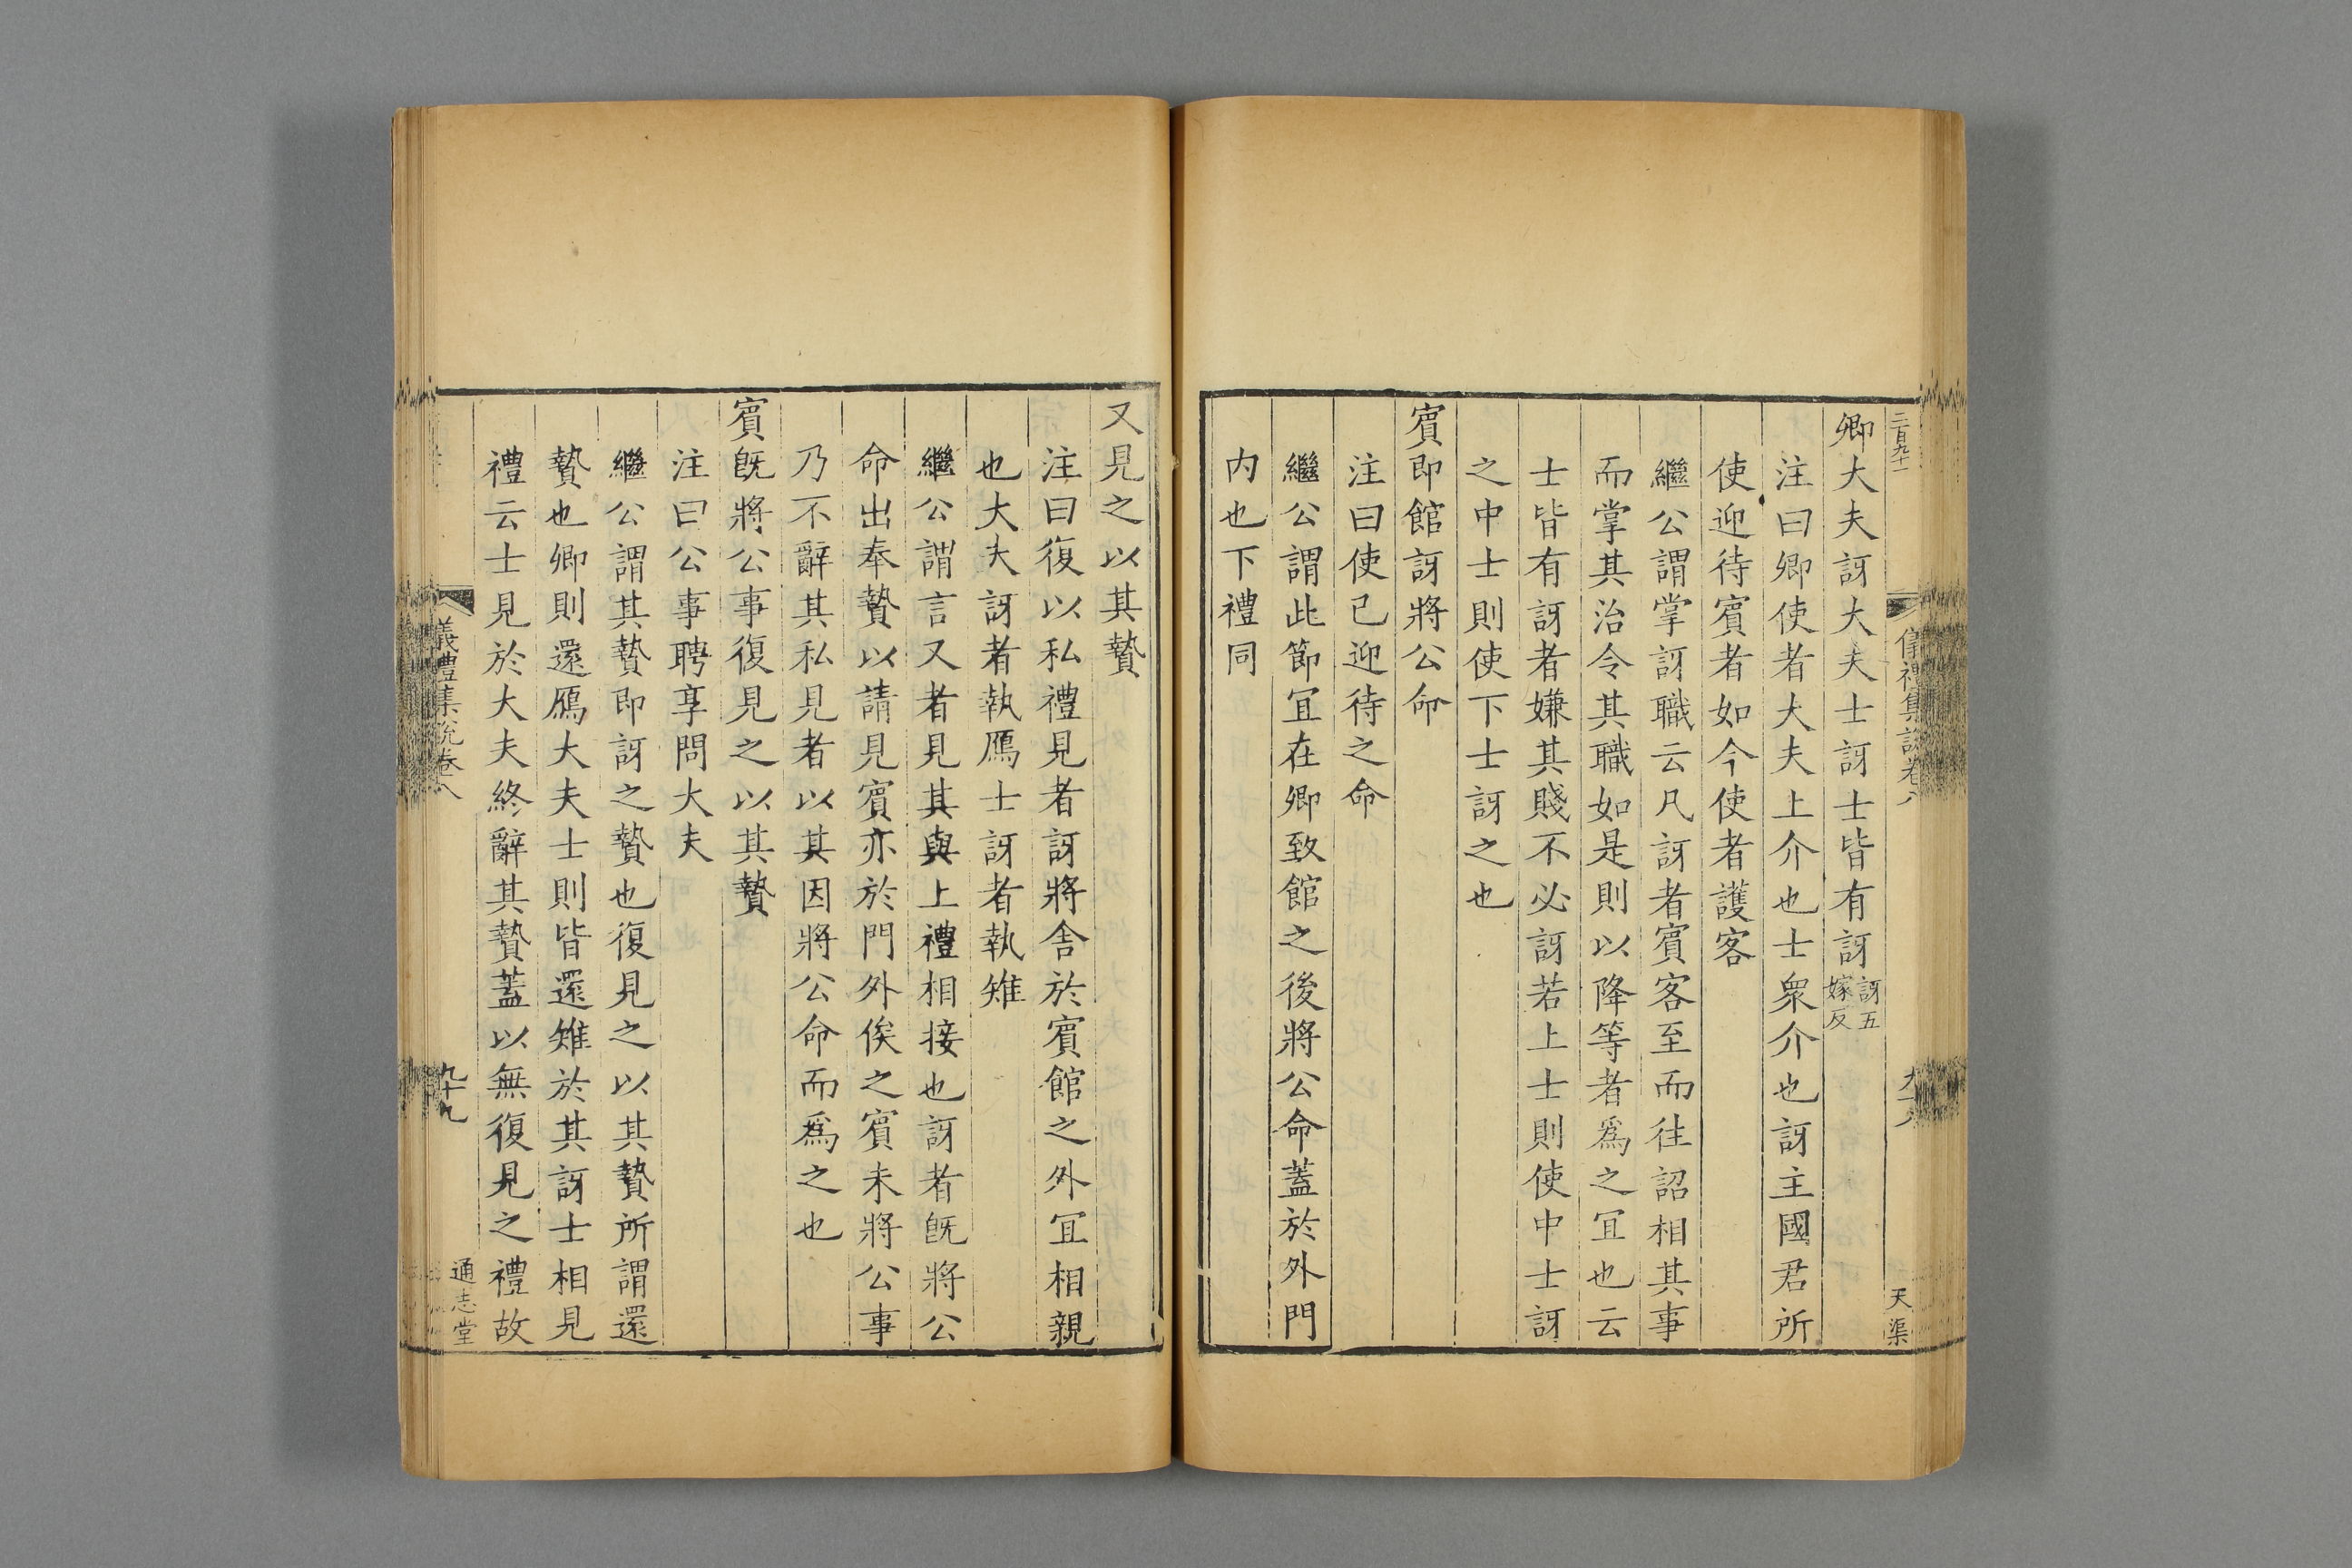 二百九十一
儀禮集說卷八
天渠
卿大夫訝大夫士訝士皆有訝訝五嫁反
注曰卿使者大夫上介也士衆介也訝主國君所
使迎待賔者如今使者護客
繼公謂掌訝職云凡訝者賔客至而往詔相其事
而掌其治令其職如是則以降等者爲之冝也云
士皆有訝者嫌其賤不必訝若上士則使中士訝
之中士則使下士訝之也
賔即館訝將公命
注曰使已迎待之命
繼公謂此節冝在卿致館之後將公命蓋於外門
内也下禮同
又見之以其贄
注曰復以私禮見者訝將舍於賔館之外冝相親
也大夫訝者執鴈士訝者執雉
繼公謂言又者見其與上禮相接也訝者旣將公
命出奉贄以請見賔亦於門外俟之賔未將公事
乃不辭其私見者以其因將公命而爲之也
賔旣將公事復見之以其贄
注曰公事聘享問大夫
繼公謂其贄即訝之贄也復見之以其贄所謂還
贄也卿則還鴈大夫士則皆還雉於其訝士相見
禮云士見於大夫終辭其贄蓋以無復見之禮故
儀禮集說卷八
九十九
通志堂